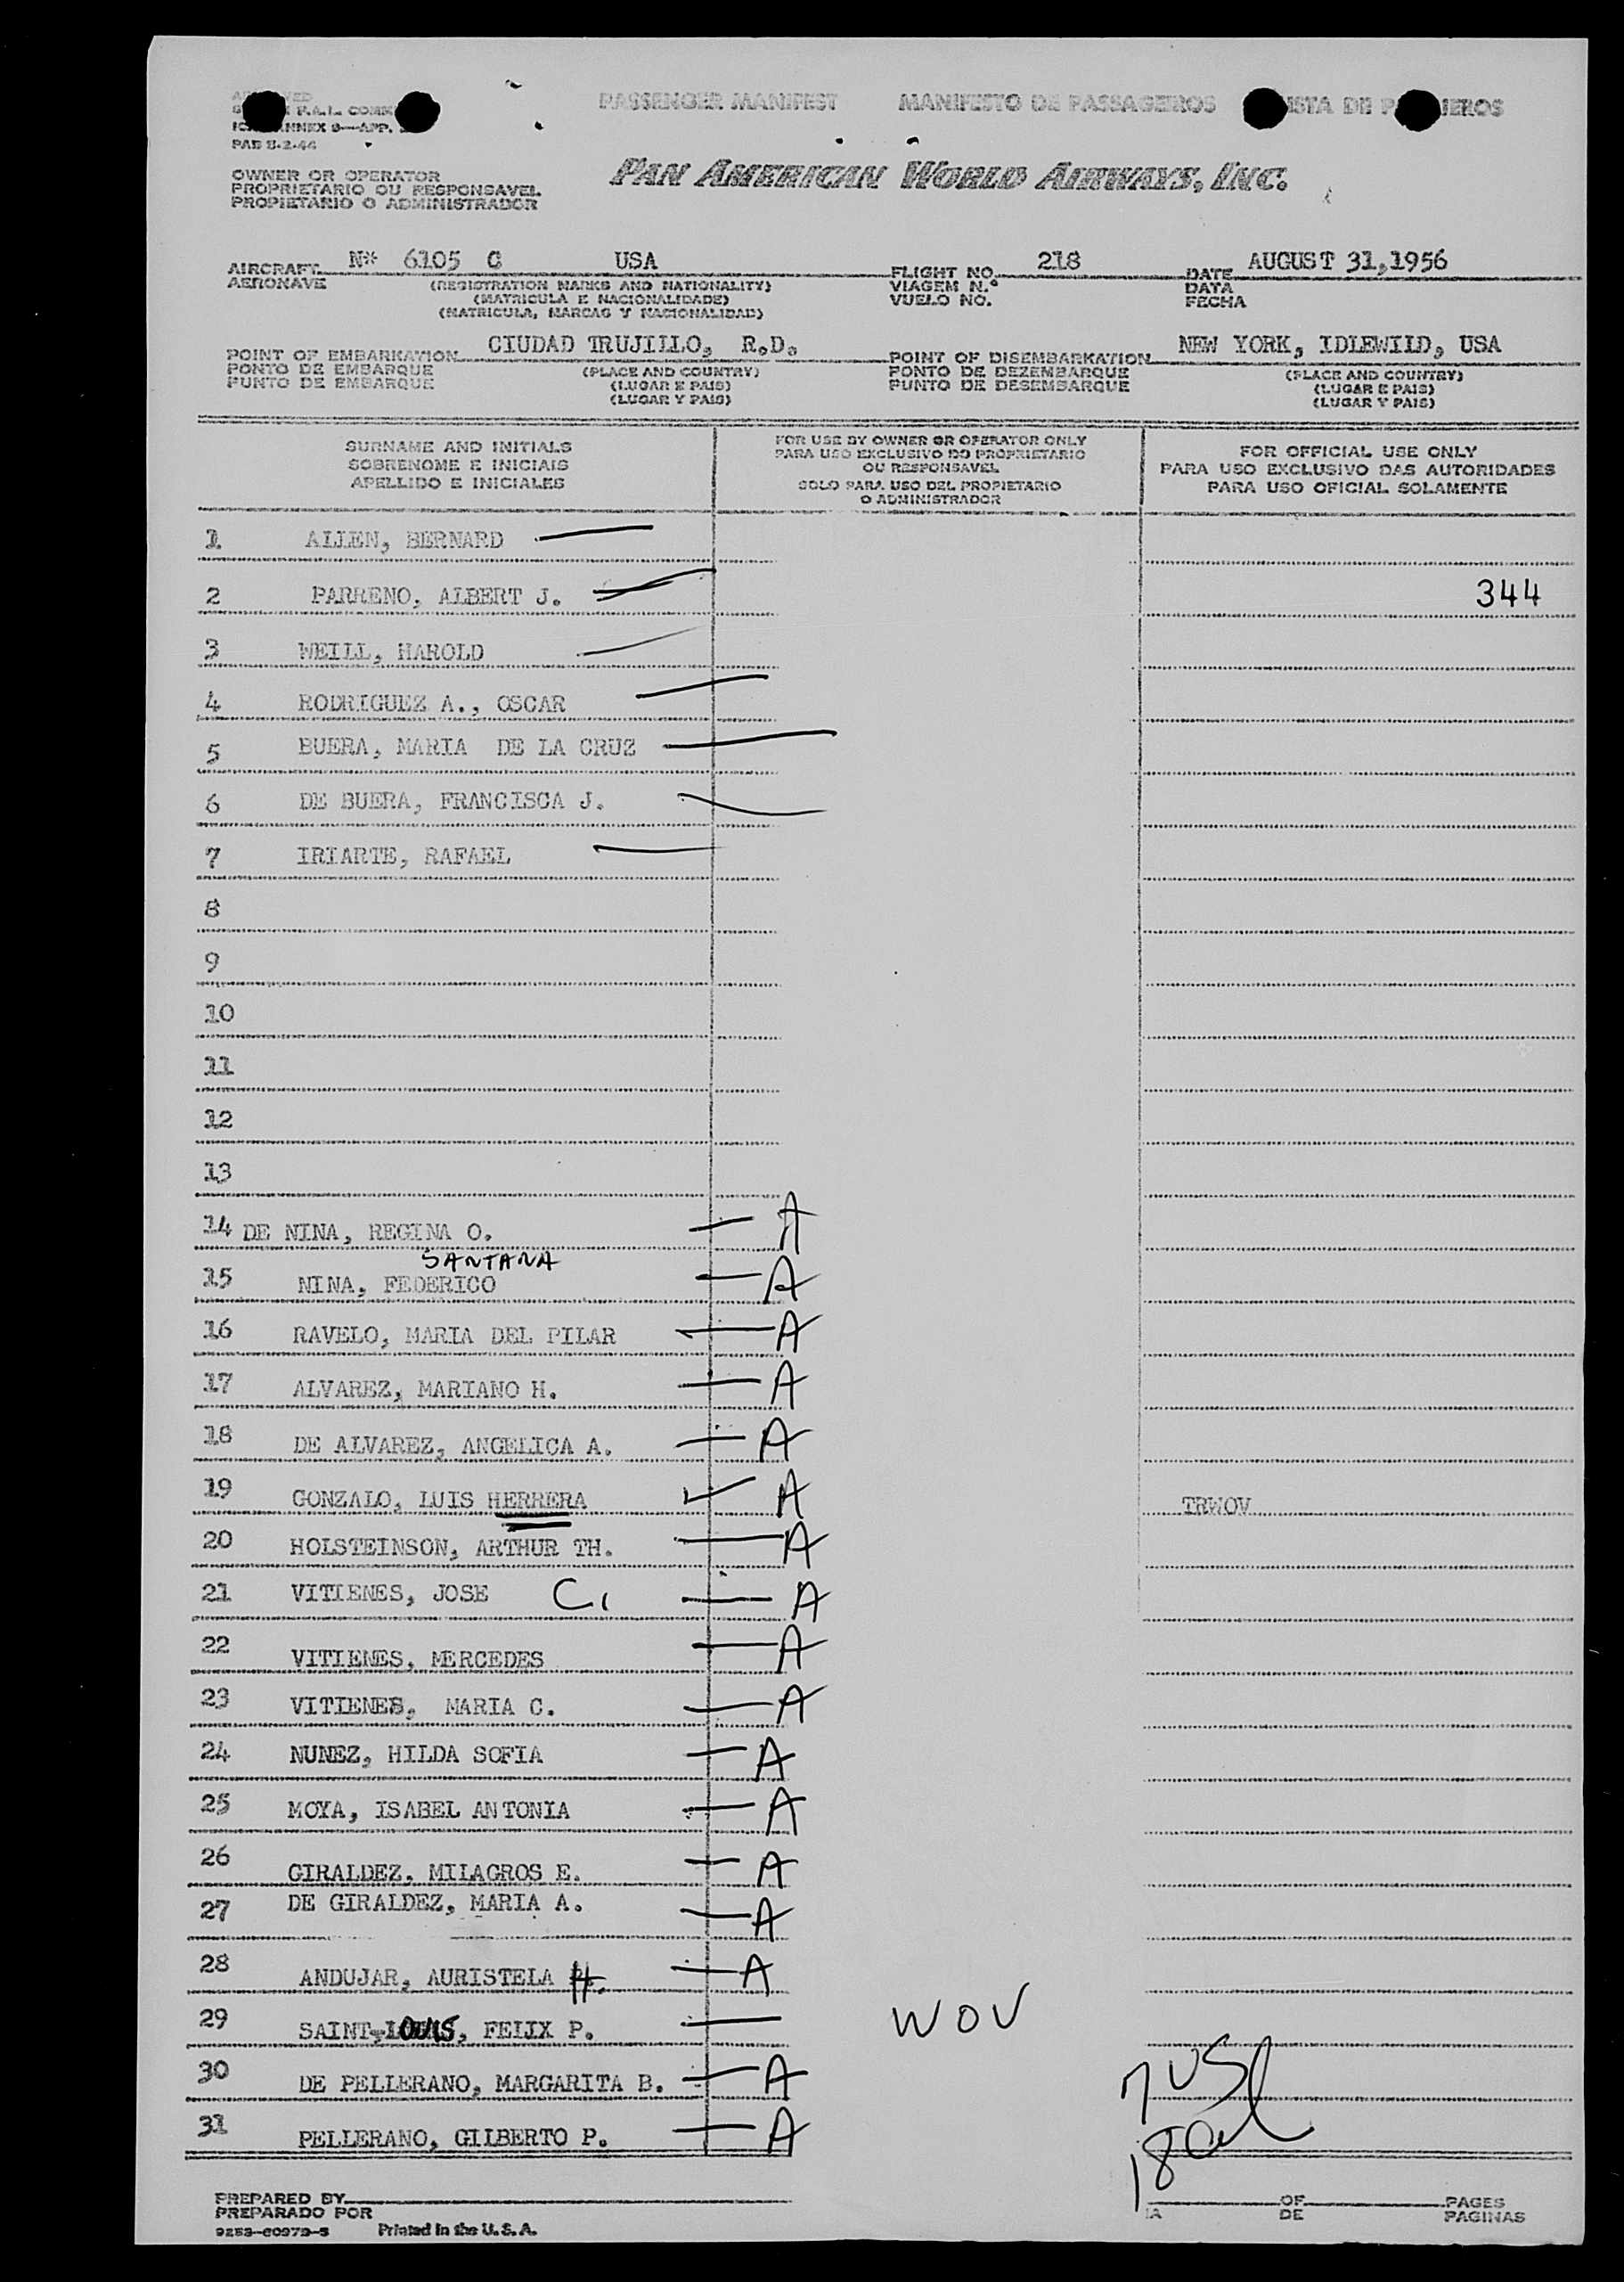 PASSENGER MANIFEST MANIFESTO DE PASSAGEIROS ISTA DE P JEROS
ANNEX 9—APP.
OWNER OR OPERATOR
PROPRIETARIO OU RESPONSAVEL
PROPIETARIO O ADMINISTRADOR
PAN AMERICAN WORLD AIRWAYS, INC.
AIRCRAFT N* 6105 C USA FLIGHT NO. 218 DATE AUGUST 31,1956
AERONAVE (REGISTRATION MARKS AND NATIONALITY) VIAGEM N.º DATA
(MATRICULA E NACIONALIDADE) VUELO NO. FECHA
(MATRICULA, MARCAS Y NACIONALIDAD)
POINT OF EMBARKATION CIUDAD TRUJILLO, R.D. POINT OF DISEMBARKATION NEW YORK, IDLEWILD, USA
PONTO DE EMBARQUE (PLACE AND COUNTRY) PONTO DE DEZEMBARQUE (PLACE AND COUNTRY)
PUNTO DE EMBARQUE (LUGAR E PAIS) PUNTO DE DESEMBARQUE (LUGAR E PAIS)
(LUGAR Y PAIS) (LUGAR Y PAIS)
SURNAME AND INITIALS
SOBRENOME E INICIAIS
APELLIDO E INICIALES
FOR USE BY OWNER OR OPERATOR ONLY
PARA USO EXCLUSIVO DO PROPRIETARIO
OU RESPONSAVEL
SOLO PARA USO DEL PROPIETARIO
O ADMINISTRADOR
FOR OFFICIAL USE ONLY
PARA USO EXCLUSIVO DAS AUTORIDADES
PARA USO OFICIAL SOLAMENTE
1 ALLEN, BERNARD
2 PARRENO, ALBERT J. 344
3 WEILL, HAROLD
4 RODRIGUEZ A., OSCAR
5 BUERA, MARIA DE LA CRUZ
6 DE BUERA, FRANCISCA J.
7 IRIARTE, RAFAEL
8
9
10
11
12
13
14 DE NINA, REGINA O. A
SANTANA
15 NINA, FEDERICO A
16 RAVELO, MARIA DEL PILAR A
17 ALVAREZ, MARIANO H. A
18 DE ALVAREZ, ANGELICA A. A
19 GONZALO, LUIS HERRERA A TRWOV
20 HOLSTEINSON, ARTHUR TH. A
21 VITIENES, JOSE C. A
22 VITIENES, MERCEDES A
23 VITIENES, MARIA C. A
24 NUNEZ, HILDA SOFIA A
25 MOYA, ISABEL ANTONIA A
26 GIRALDEZ, MILAGROS E. A
27 DE GIRALDEZ, MARIA A. A
28 ANDUJAR, AURISTELA H. A
29 SAINT-LOUIS, FELIX P. WOV
30 DE PELLERANO, MARGARITA B. A
7 USC
31 PELLERANO, GILBERTO P. A
18 al
PREPARED BY OF PAGES
PREPARADO POR DE PAGINAS
9253-60979-5 Printed in the U.S.A.